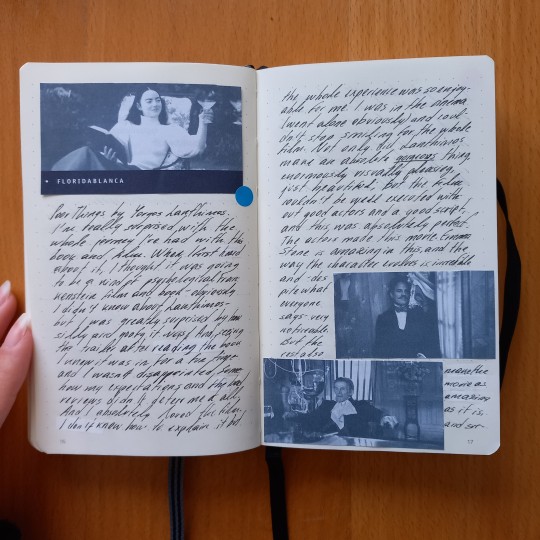 FLORIDABLANCA
Poor Things by Yorgos Lanthimos.
I'm really surprised with the
whole journey I've had with this
book and film. When I first heard
about it, I thought it was going
to be a kind of psychological Fran-
kenstein film and book - obviously
I didn't know about Lanthimos -
but I was greatly surprised by how
silly and
the trailer after reading the book
I knew it was in for a
and I wasn't disappointed. Some
how my expectations and the bad
reviews didn't deter me at all.
And I absolutely loved the film.
I don't know how to explain it but
16
the whole experience was so enjoy-
able for me. I was in the cinema
I went alone obviously and coul-
dn't stop smiling for the whole
film. Not only did Lanthimos
make an absolute gorgeous thing,
enormously visually pleasing,
just beautiful, but the film
couldn't be well executed with-
out good actors and a good script,
and this, was absolutely perfect.
The actors made this movie. Emma
Stone is amazing in this, and the
way the character evolves is incredible
and - des-
pite what
everyone
says - very
noticeable.
But the
rest also
make the
movie as
amazing
as it is.
and
17